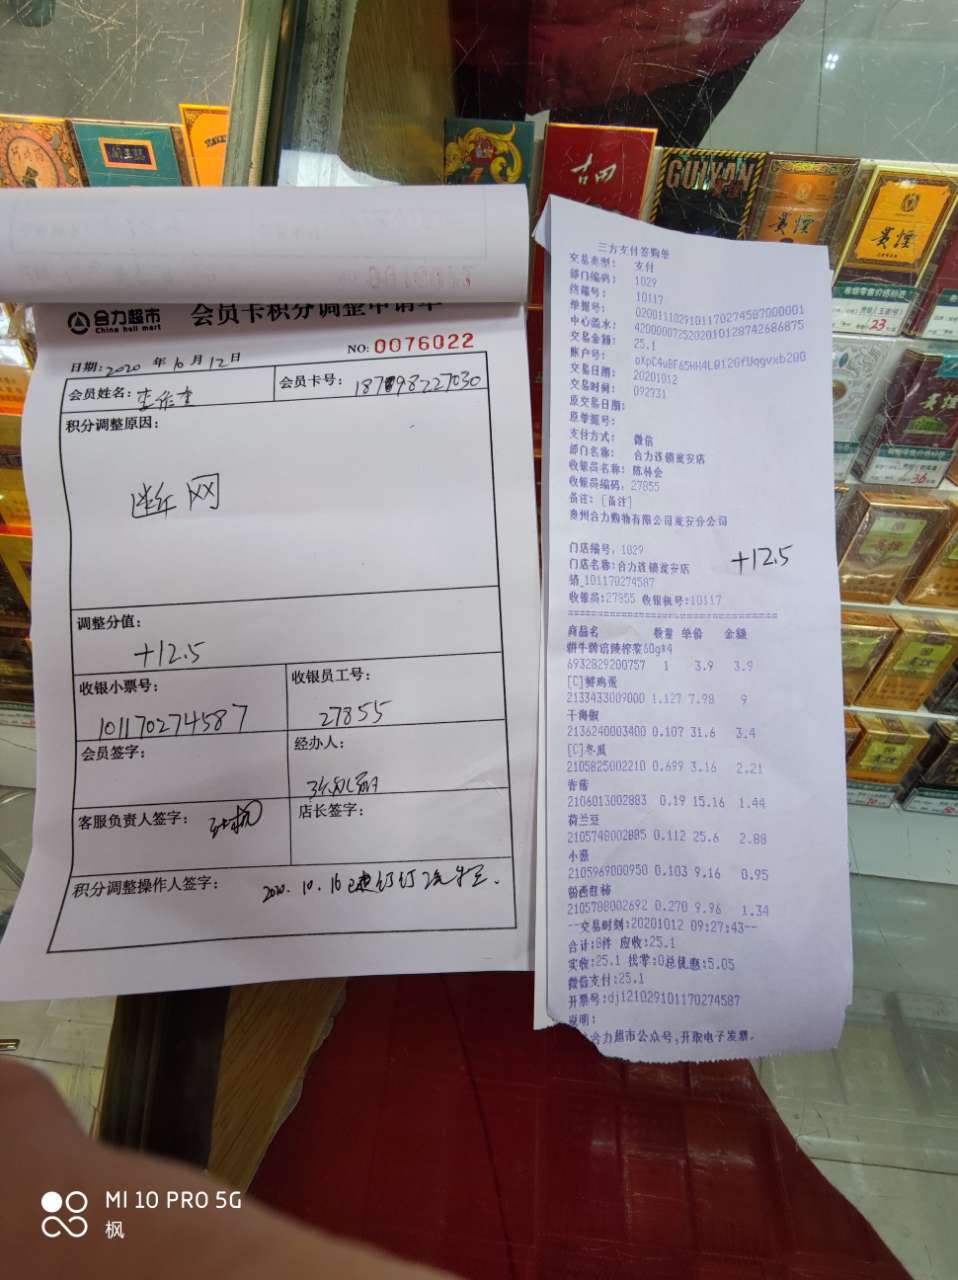 合力超市
China holi mart
会员卡积分调整申请单
日期:2020 年 10 月 12 日
NO: 0076022
会员姓名:
会员卡号:
积分调整原因:
网
调整分值:
+12.5
收银小票号:
101170274587
收银员工号:
27855
会员签字:
经办人:
客服负责人签字:
店长签字:
积分调整操作人签字:
2020.10.16已
三方支付签购单
交易类型: 支付
部门编码: 1029
终端号: 10117
单据号: 020011102910117027458700001
中心流水: 4200000725202010128742686875
交易金额: 25.1
账户号:
交易日期: 20201012
交易时刻: 092731
原交易日期:
原单据号:
支付方式: 微信
部门名称: 合力连锁瓮安店
收银员名称: 陈林会
收银员编码: 27855
备注: [备注]
贵州合力购物有限公司瓮安分公司
门店编号: 1029
+12.5
门店名称:合力连锁瓮安店
销_101170274587
收银员:27855 收银机号:10117
商品名 数量 单价 金额
6932829200757 1 3.9 3.9
[C]鲜鸡蛋
2133433009000 1.127 7.98 9
干海椒
2136240003400 0.107 31.6 3.4
[C]冬瓜
2105825002210 0.699 3.16 2.21
香菇
2106013002883 0.19 15.16 1.44
荷兰豆
2105748002885 0.112 25.6 2.88
小葱
2105969000950 0.103 9.16 0.95
粉西红柿
2105788002692 0.270 9.96 1.34
--交易时刻:20201012 09:27:43--
合计:8件 应收:25.1
实收:25.1 找零:0总优惠:5.05
微信支付:25.1
开票号:dj121029101170274587
说明:
合力超市公众号,开取电子发票.
吉
GUIYAN
貴煙
貴煙
23
36
MI 10 PRO 5G
枫